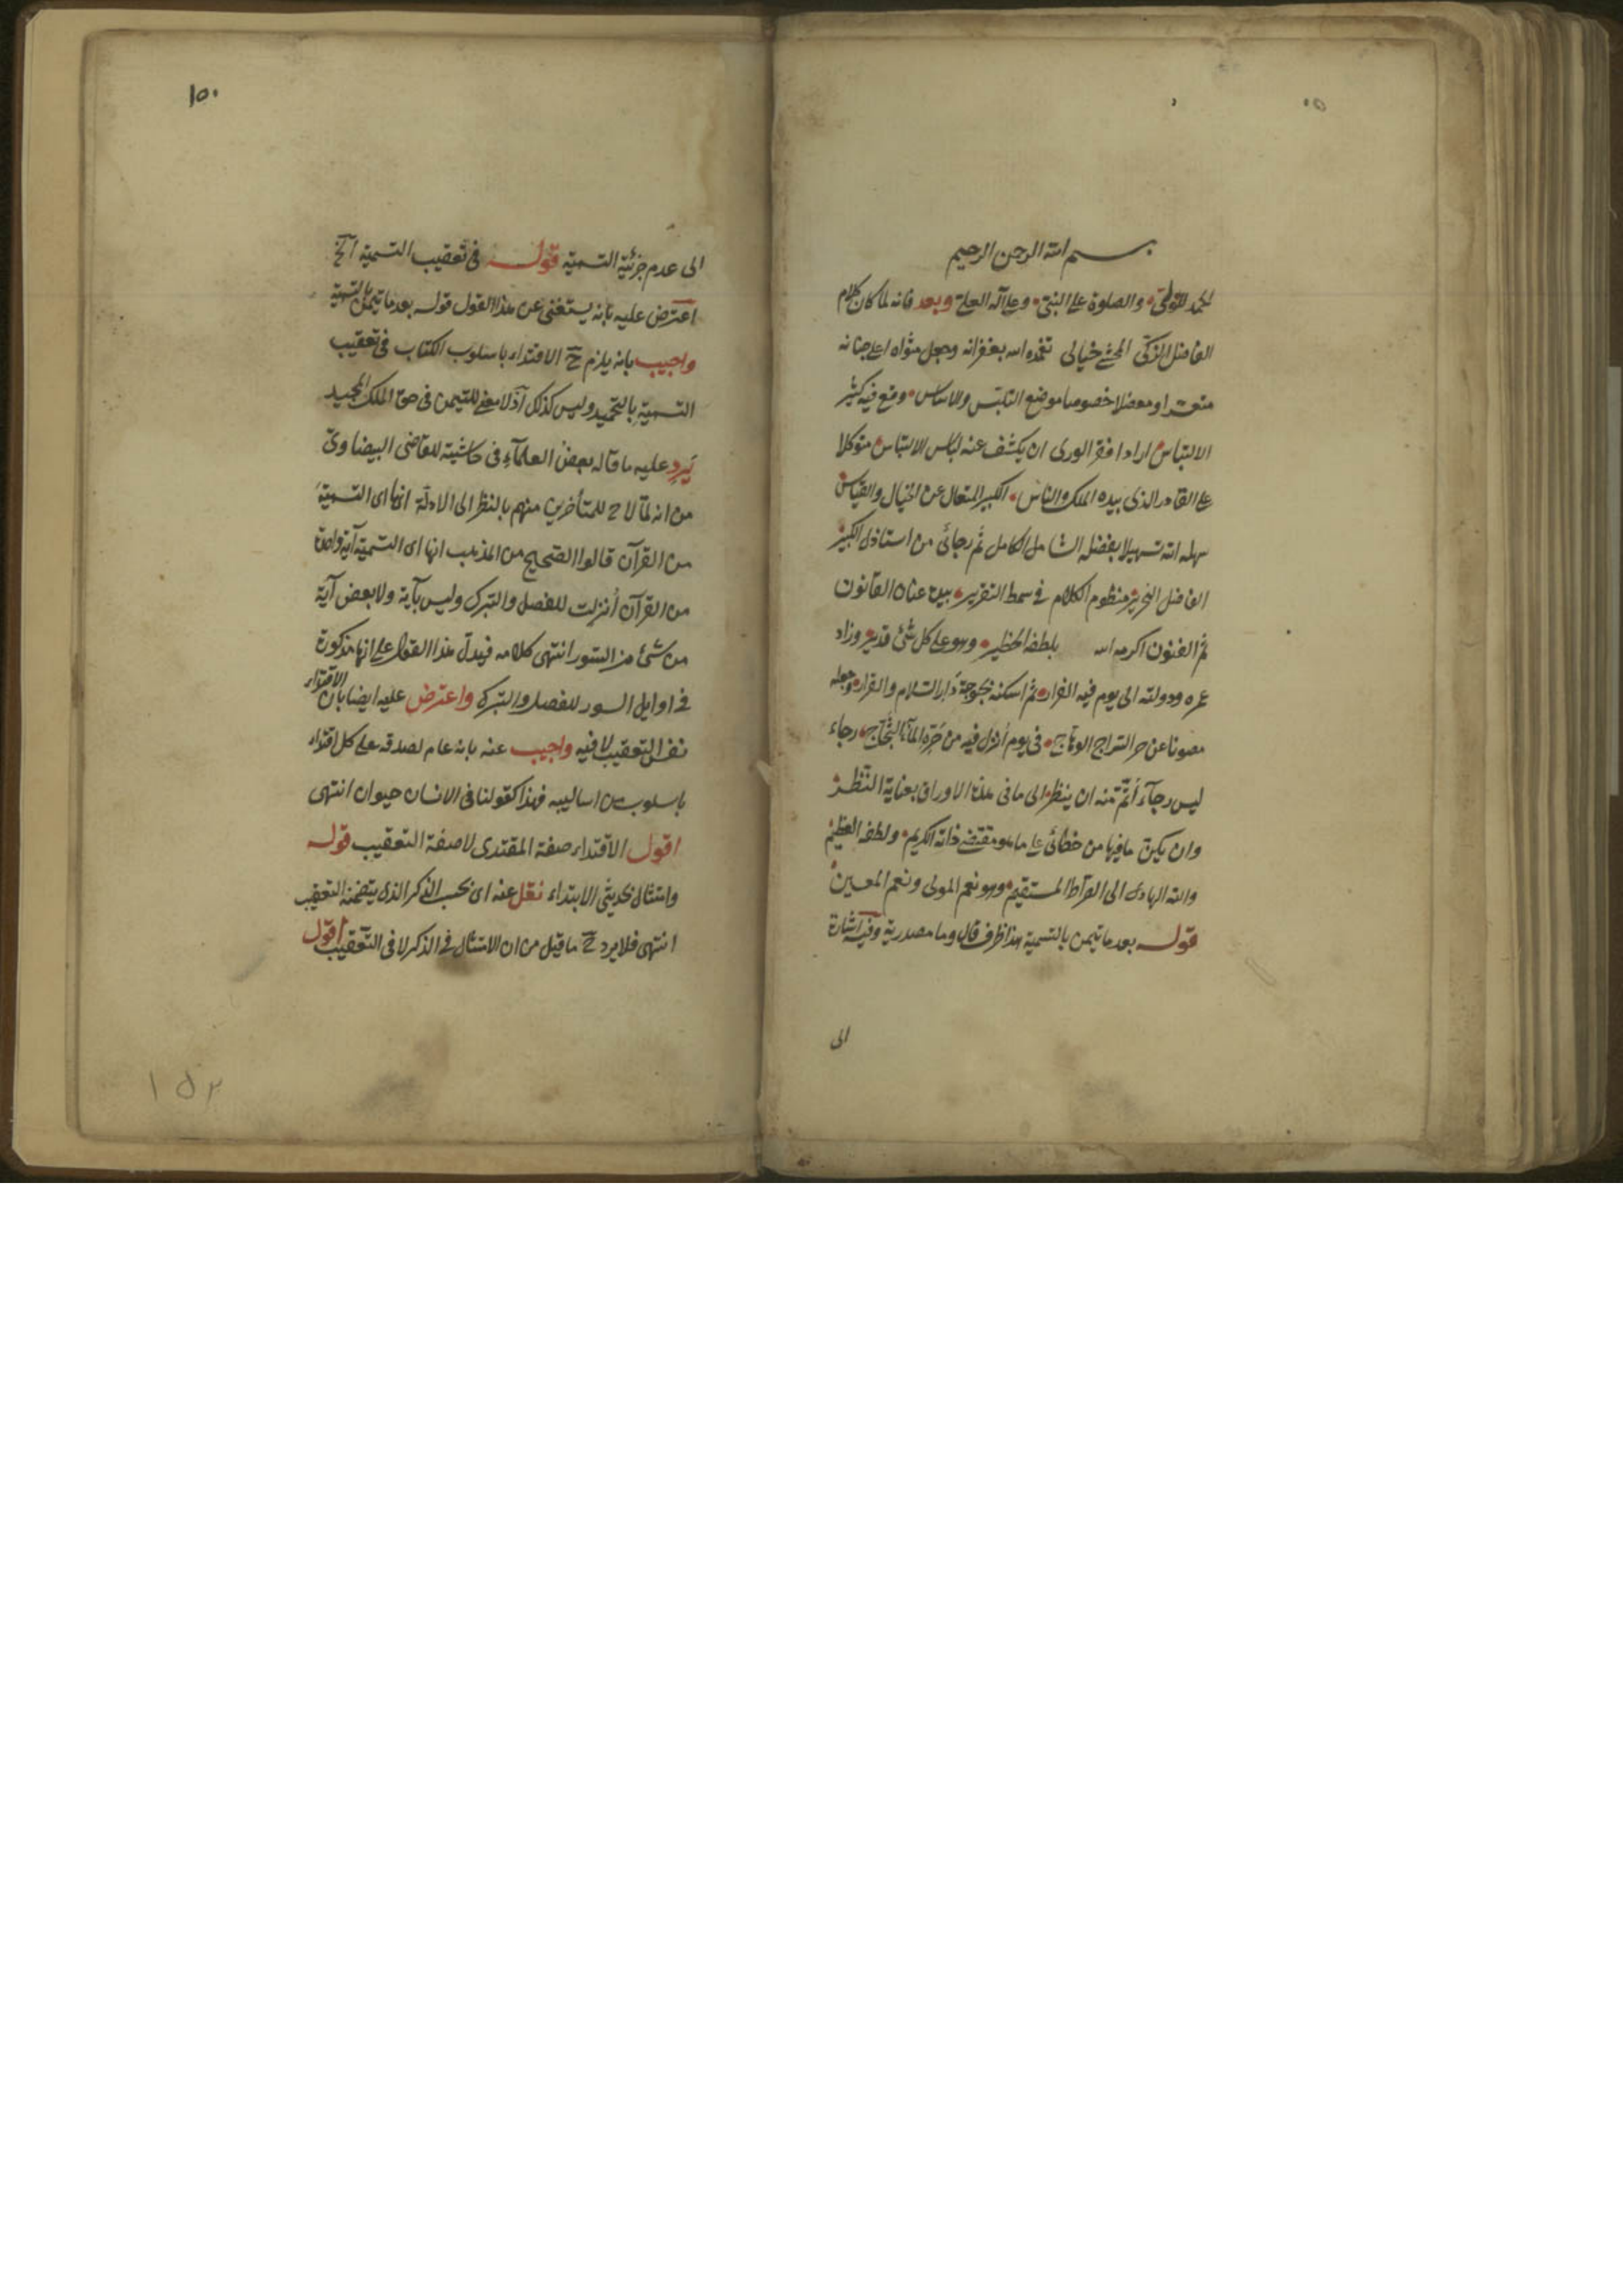 بسم الله الرحمن الرحيم
الحمد للولى والصلوة على النبى وعلى آله العلى وبعد فانه لما كان كلام
الفاضل الزكى المحشى خيالى تغمده الله بغفرانه وجعل مثواه اعلى جنانه
متعسرا ومعضلا خصوصا موضع التلبس والاساس وقع فيه كثير
الالتباس اراد افقر الورى ان يكشف عنه لباس الالتباس متوكلا
على القادر الذى بيده الملك والناس الكبير المتعال عن الخيال والقياس
سهله الله تسهيلا بفضله الشامل الكامل ثم رجائى من استاذى الكبير
الفاضل النحرير منظوم الكلام فى سمط التقرير عنان القانون
ثم الفنون اكرمه الله بلطفه الخطير وهو على كل شئ قدير وزاد
عمره ودولته الى يوم فيه الفرار ثم اسكنه دار السلام والقرار وجعله
مصونا عن حر السراج الوهاج فى يوم انزل فيه من رجاء
ليس رجآء أتم منه ان ينظر الى ما فى هذه الاوراق بعناية النظر
وان يكون ما فيها من خطائى على ما هو مقتضى ذاته الكريم ولطفه العظيم
والله الهادى الى الصراط المستقيم وهو نعم المولى ونعم المعين
قوله بعد ما تيمن بالتسمية هذا ظرف قال وما مصدرية وفيه اشارة
الى
١٥٠
الى عدم جزئية التسمية قوله فى تعقيب التسمية آلخ
اعترض عليه بانه يستغنى عن هذا القول قوله بعد ما تيمن بالتسمية
واجيب بانه يلزم ح الاقتداء باسلوب الكتاب فى تعقيب
التسمية بالتحميد وليس كذلك اذ لا معنى للتيمن فى حق الملك المجيد
يرد عليه ما قاله بعض العلمآء فى حاشيته للقاضى البيضاوى
من انه لما لاح للمتأخرين منهم بالنظر الى الادلة انها اى التسمية
من القرآن قالوا الصحيح من المذهب انها اى التسمية آية واحدة
من القرآن أنزلت للفصل والتبرك وليس بآية ولا بعض آية
من شئ من السور انتهى كلامه فيدل هذا القول على انها مذكورة
فى اوايل السور للفصل والتبرك واعترض عليه ايضا بان الاقتداء
نفس التعقيب لا فيه واجيب عنه بانه عام لصدقه على كل اقتداء
باسلوب من اساليبه فهذا كقولنا فى الانسان حيوان انتهى
اقول الاقتداء صفة المقتدى لا صفة التعقيب قوله
وامتثال لحديثى الابتداء نقل عنه اى بحسب الذكر الذى يتضمنه التعقيب
انتهى فلا يرد ح ما قيل من ان الامتثال فى الذكر لا فى التعقيب اقول
١٥٢